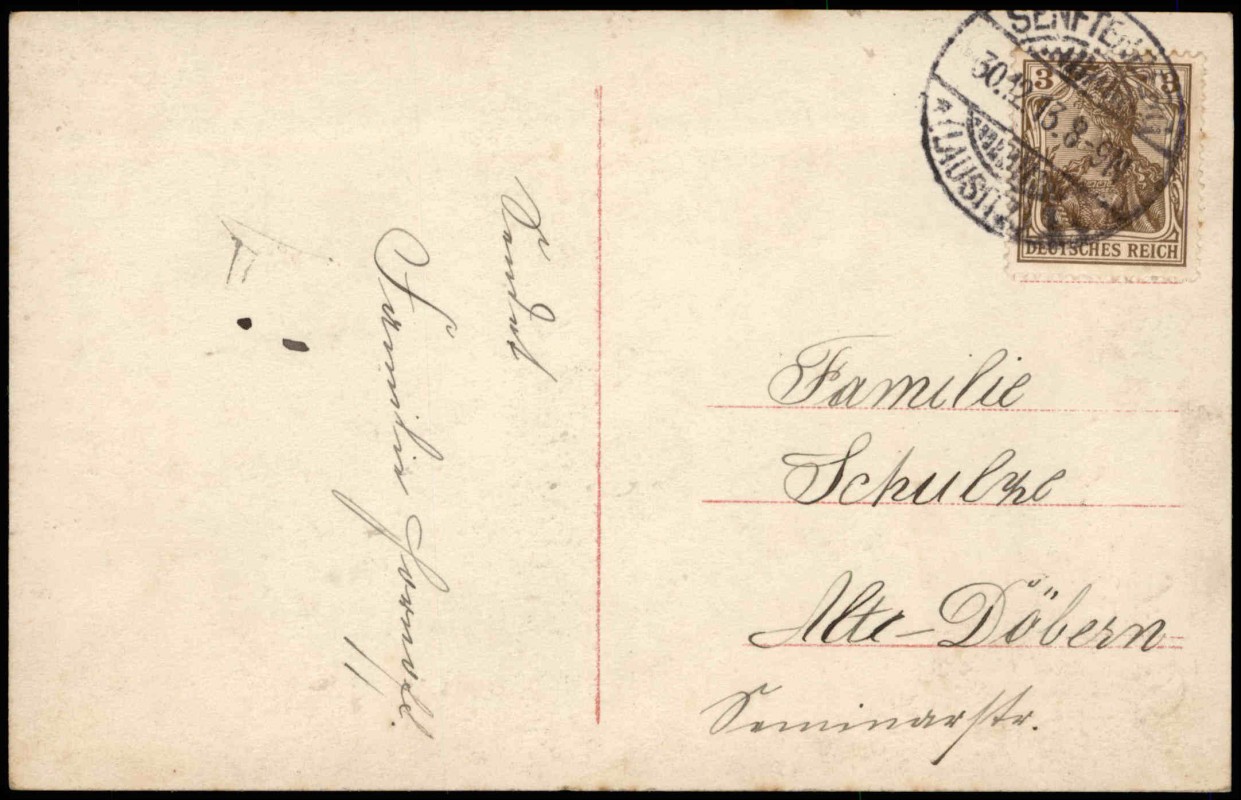 Sendet
Familie
SENFTENBERG
30.12.13.8-9N
*(LAUSITZ)
3 3
DEUTSCHES REICH
Familie
Schulze
Alte-Döbern
Seminarstr.